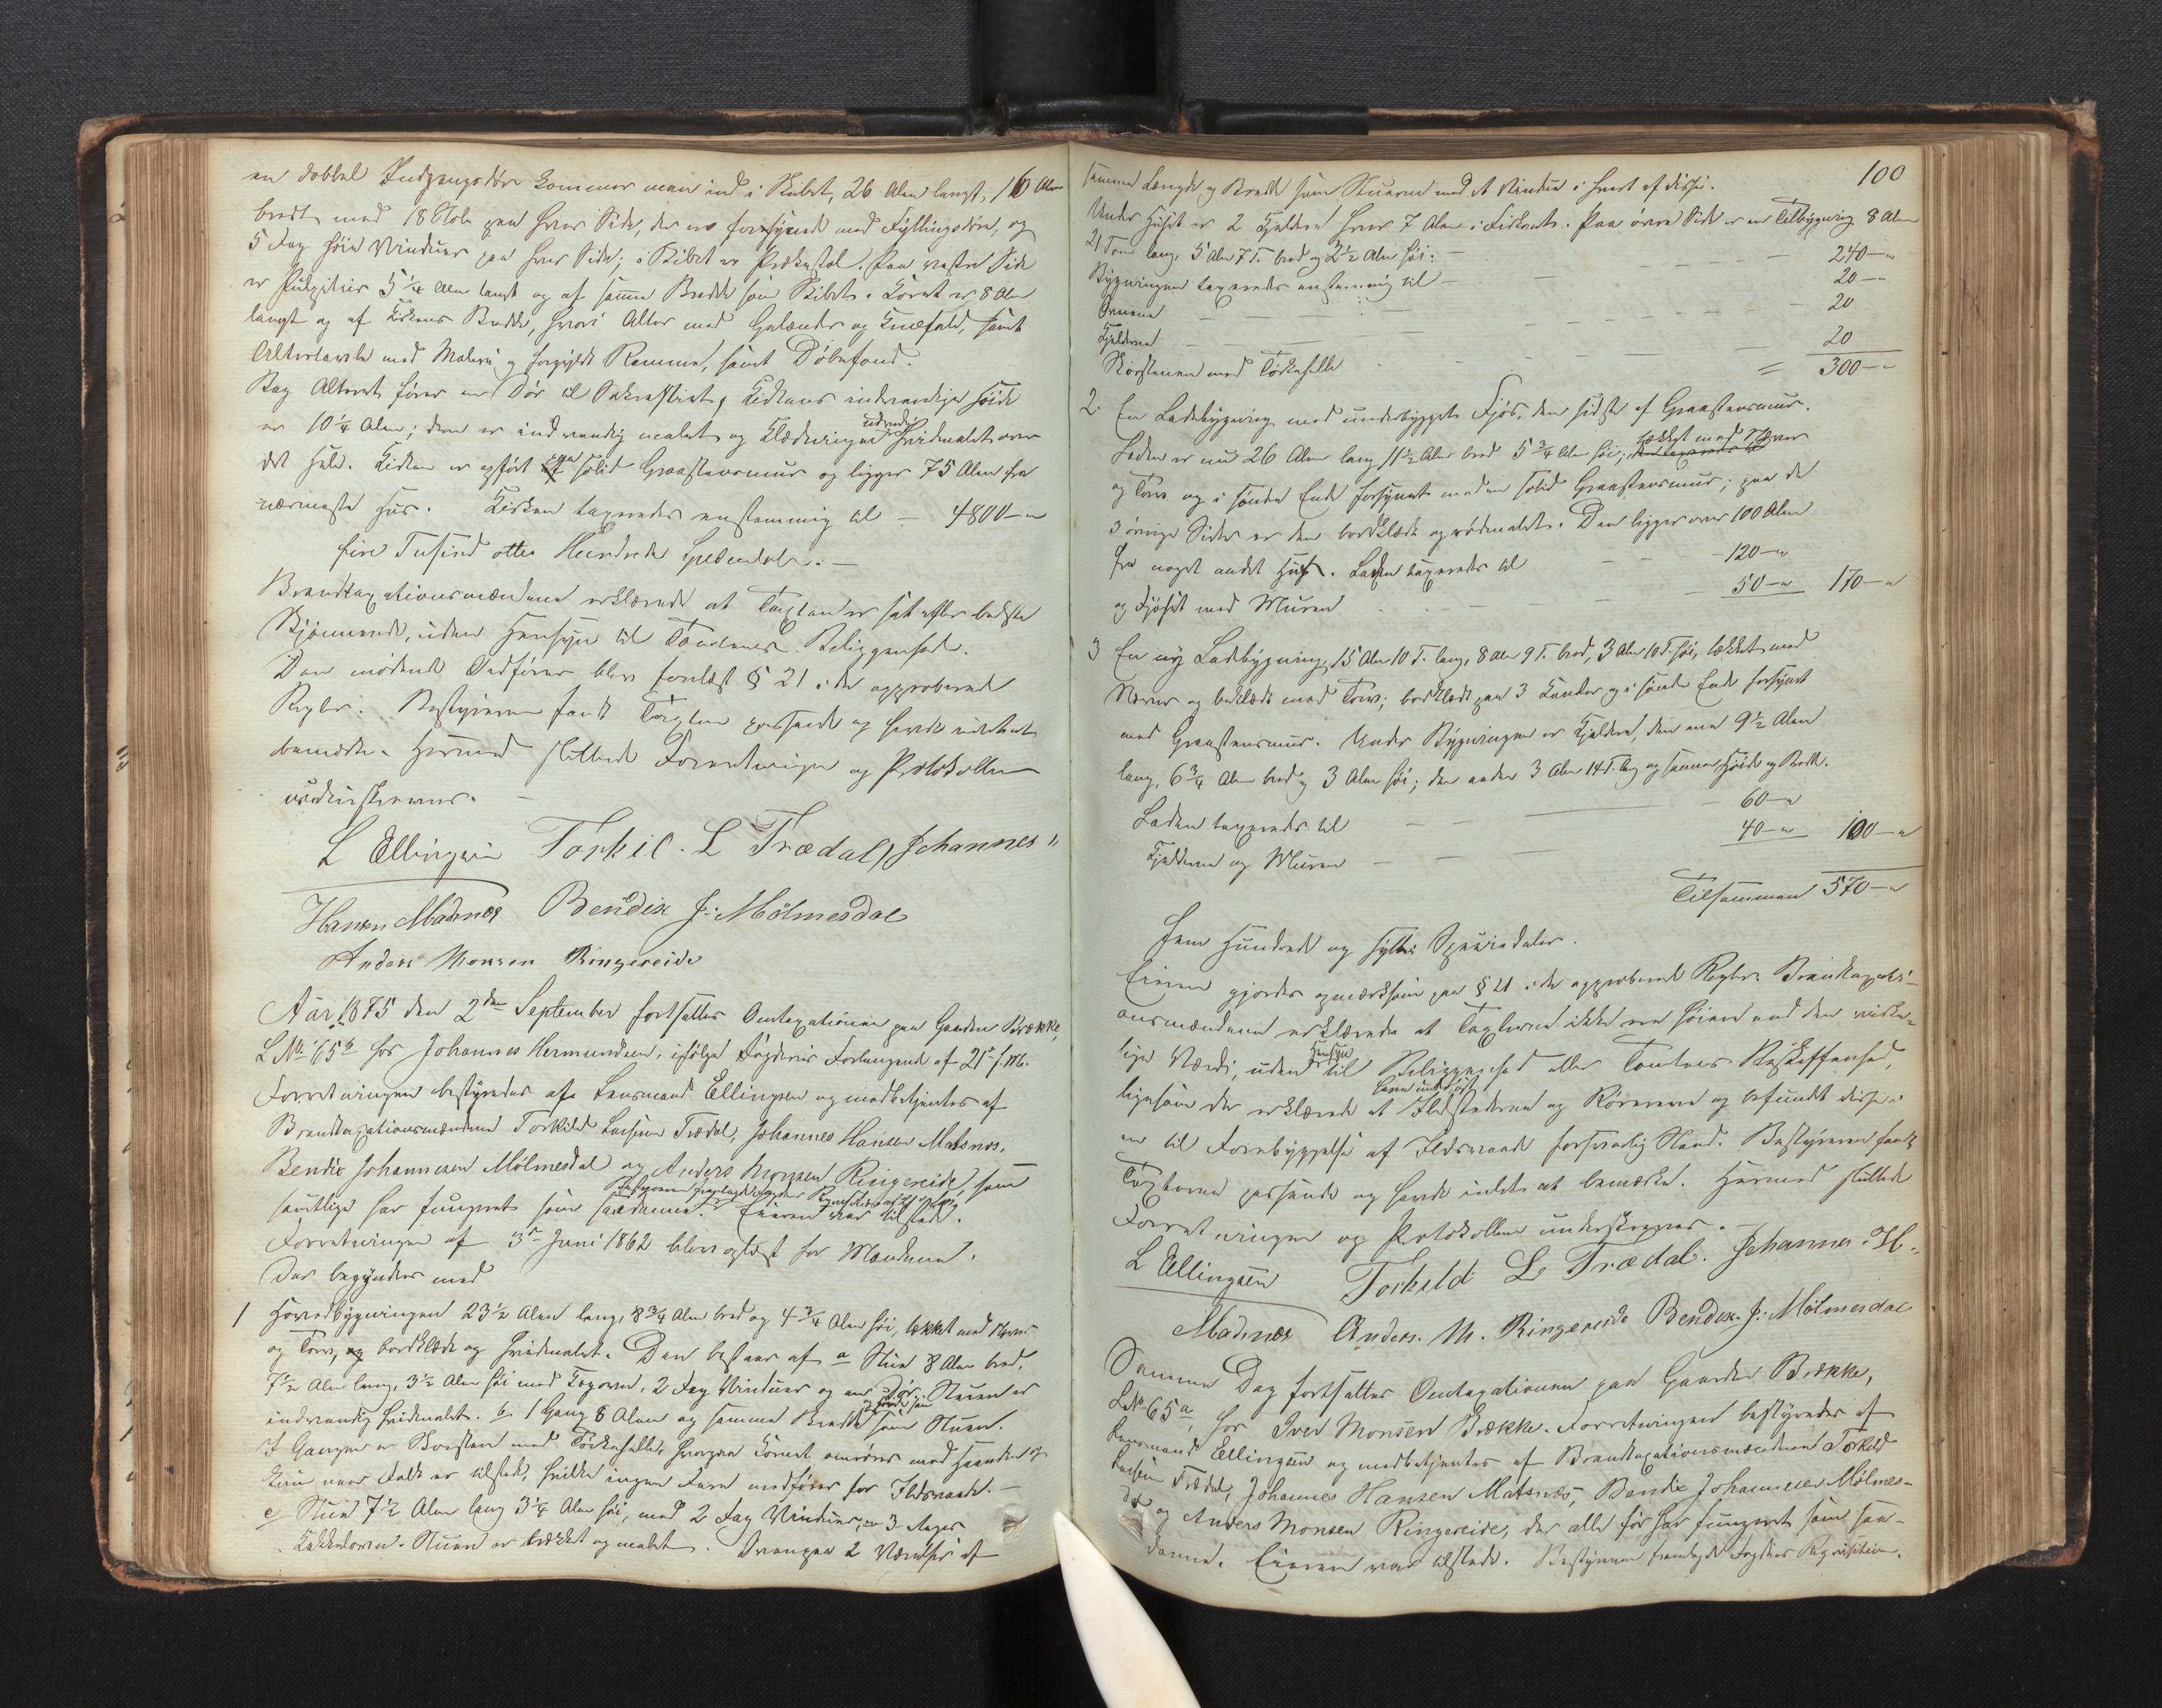 en dobbel Indgangsdør kommer man ind i Skibet, 26 Alen langt, 16 Alen
bredt med 18 Stole paa hver Side, der er forsynede med Fyllingsdøre, og
5 Fag høie Vinduer paa hver Side; i Skibet er Prækestol. Paa vestre Side
er Pulpitur 5 1/4 Alen langt og af samme Bredde som Skibet. Koret er 8 Alen
langt og af Kirkens Bredde, hvori Alter med Gelænder og Knæfald, samt
Altertavle med Maleri og forgyldt Ramme, samt Døbefond.
Bag Alteret fører en Dør til Sakristiet, Kirkens indvendige Høide
er 10 1/4 Alen; den er indvendig malet og Klædningen udvendig hvidmalet over
det Hele. Kirken er opført paa solid Graastensmur og ligger 75 Alen fra
nærmeste Hus. Kirken taxeredes enstemmig til — 4800 —"
fire Tusind otte Hundrede Speciedaler. —
Brandtaxationsmændene erklærede at Taxten er sat efter bedste
Skjønnende, uden Hensyn til Tomtens Beliggenhed.
Den mødende Bedfører blev forelæst § 21 i de approberede
Regler. Bestyreren fandt Taxten passende og havde intet at
bemærke. Hermed sluttede Forretningen og Protokollen
underskreves. —
L Ellingsen Torkil. L Trædal, Johannes "
Hansen Matsnæs Bendix J: Mölmesdal
Anders Monsen Ringereide
Aar 1875 den 2den September fortsattes Omtaxationen paa Gaarden Brække,
L No 65 b hos Johannes Hermundsen, ifølge Fogderiets Forlangende af 21de f. M.
Forretningen bestyredes af Lensmand Ellingsen og medbetjentes af
Brandtaxationsmændene Torkild Larsen Trædal, Johannes Hansen Matsnæs,
Bendix Johannesen Mölmesdal og Anders Monsen Ringereide, som
samtlige har fungeret som saadanne. Eieren var tilstede.
Bestyreren fremlagde Fogdens Requisition
Forretningen af 3de Juni 1862 blev oplæst for Mændene.
Der begyndtes med
1 Hovedbygningen 23 1/2 Alen lang, 8 3/4 Alen bred og 4 3/4 Alen høi, tækket med Næver
og Torv, bordklædt og hvidmalet. Den bestaar af a Stue 8 Alen bred,
7 1/2 Alen lang, 3 1/2 Alen høi med Kogovn, 2 Fag Vinduer og en Dør. Stuen er
indvendig hvidmalet. b 1 Gang 8 Alen og samme Bredde og Høide som Stuen.
I Gangen er Skorsten med Tørkehelle, hvorpaa Kornet omrøres med Haanden og
kun naar Folk er tilstede, hvilke ingen Fare medfører for Ildsvaade. —
c Stue 7 1/2 Alen lang 3 1/4 Alen høi, med 2 Fag Vinduer, en 3 Etages
Kakkelovn. Stuen er trækket og malet. Ovenpaa 2 Værelser af
100
samme Længde og Bredde som Stuerne med et Vindue i hvert af disse.
Under Huset er 2 Kjeldere hver 7 Alen i Firkant. Paa øvre Side er en Tilbygning 8 Alen
21 Tom lang, 5 Alen 7 T. bred og 2 1/2 Alen høi.
Bygningen taxeredes enstemmig til — 240 —"
Ovnene — 20 —
Kjelderne — 20
Skorstenen med Tørkehelle 20
= 300 —"
2. En Ladebygning med underbygget Fjøs, den sidste af Graastensmur.
Laden er nu 26 Alen lang 11 1/2 Alen bred 5 3/4 Alen høi, tækket med Næver
og Torv og i søndre Ende forsynet med en solid Graastensmur; paa de
3 øvrige Sider er den bordklædt og rødmalet. Den ligger over 100 Alen
fra noget andet Hus. Laden taxeredes til — 120 —"
og Fjøset med Muren — 50 —" 170 —"
3 En ny Ladebygning, 15 Alen 10 T. lang, 8 Alen 9 T. bred, 3 Alen 10 T. høi, tækket med
Næver og beklædt med Torv; bordklædt paa 3 Kanter og i søndre Ende forsynet
med Graastensmur. Under Bygningen er Kjeldere, den ene 9 1/2 Alen
lang, 6 3/4 Alen bred og 3 Alen høi; den anden 3 Alen 14 T. lang og samme Høide og Bredde.
Laden taxeredes til — 60 —"
Kjelderen og Muren — 40 —" 100 —"
Tilsammen 570 —"
fem Hundrede og sytti Speciedaler.
Eieren gjordes opmærksom paa § 21 i de approberede Regler. Brandtaxati-
onsmændene erklærede at Taxterne ikke ere høiere end den virke-
lige Værdi, uden Hensyn til Beliggenhed eller Tomtens Beskaffenhed,
ligesom de erklærede at have undersøgt Ildstederne og Rørene og befundet disse i
en til Forebyggelse af Ildsvaade forsvarlig Stand. Bestyreren fandt
Taxterne passende og havde intet at bemærke. Hermed sluttede
Forretningen og Protokollen underskreves. —
L Ellingsen Torkild L. Trædal. Johannes. H.
Matsnæs Anders. M. Ringereide Bendix. J: Mölmesdal
Samme Dag fortsattes Omtaxationen paa Gaarden Brække,
L.No. 65 a, hos Iver Monsen Brække. Forretningen bestyredes af
Lensmand Ellingsen og medbetjentes af Brandtaxationsmændene Torkild
Larsen Trædal, Johannes Hansen Matsnæs, Bendix Johannesen Mölmes-
dal og Anders Monsen Ringereide, der alle før har fungeret som saa-
danne. Eieren var tilstede. Bestyreren fremlagde Fogdens Requisition.